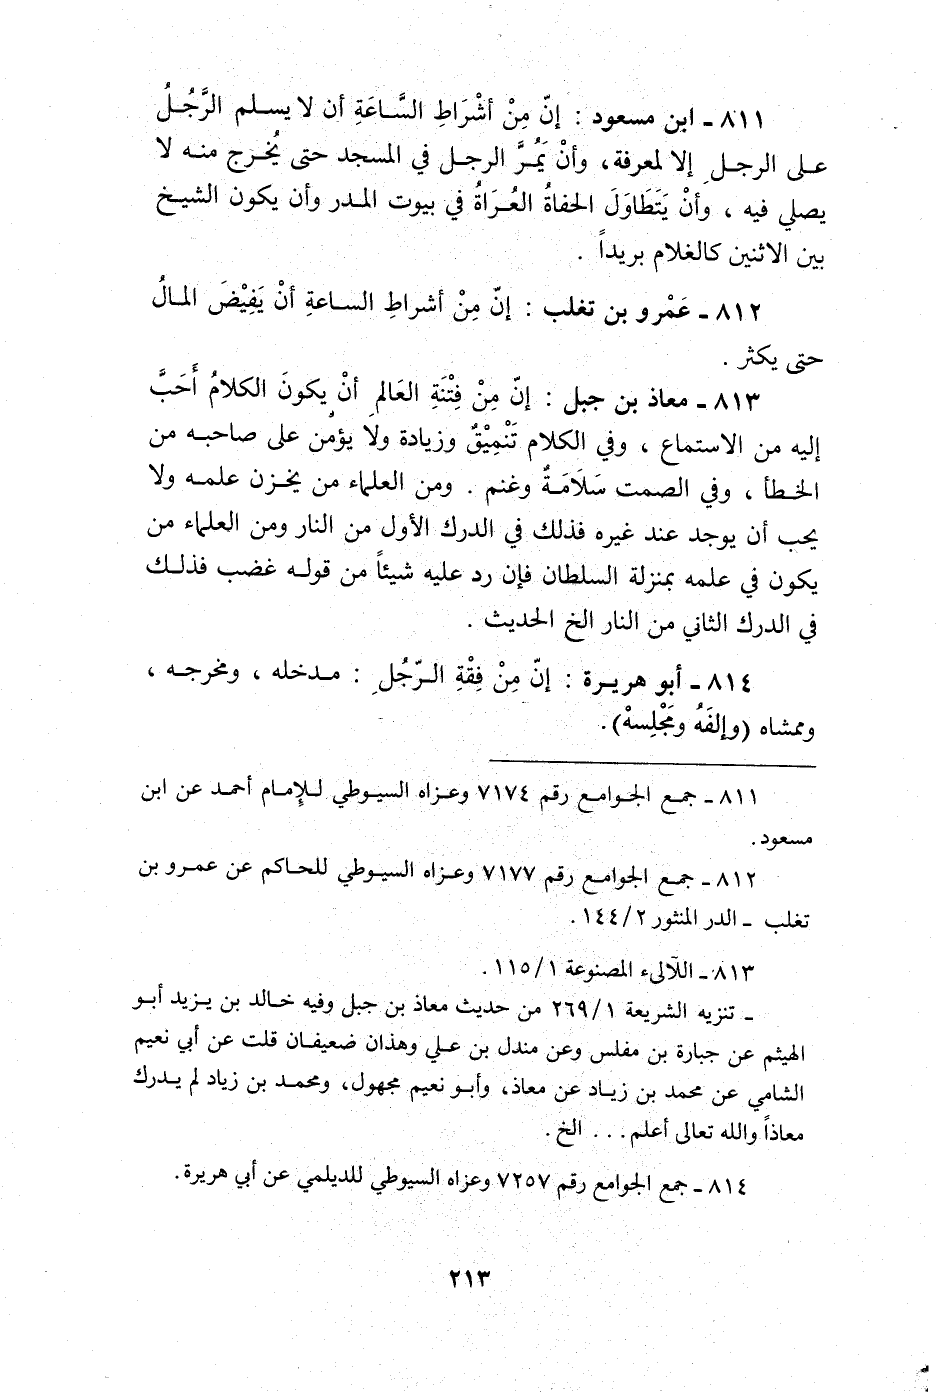 ٨١١ ـ ابن مسعود : إنّ مِنْ أشْرَاطِ السَّاعَةِ أن لا يسلم الرَّجُلُ
على الرجلِ إلا لمعرفة، وأنْ يَمُرَّ الرجل في المسجد حتى يُخرج منه لا
يصلي فيه ، وأنْ يَتَطَاوَلَ الحفاةُ العُرَاةُ في بيوت المدر وأن يكون الشيخ
بين الاثنين كالغلام بريداً .
٨١٢ ـ عَمْرو بن تغلب : إنّ مِنْ أشراطِ الساعةِ أنْ يَفِيْضَ المالُ
حتى يكثر .
٨١٣ ـ معاذ بن جبل : إنّ مِنْ فِتْنَةِ العَالمِ أنْ يكونَ الكلامُ أَحَبَّ
إليه من الاستماع ، وفي الكلام تَنْمِيْقٌ وزيادة ولا يؤمن على صاحبه من
الخطأ ، وفي الصمت سَلَامَةٌ وغنم . ومن العلماء من يخزن علمه ولا
يحب أن يوجد عند غيره فذلك في الدرك الأول من النار ومن العلماء من
يكون في علمه بمنزلة السلطان فإن رد عليه شيئاً من قوله غضب فذلك
في الدرك الثاني من النار الخ الحديث .
٨١٤ ـ أبو هريرة : إنّ مِنْ فِقْةِ الرّجُلِ : مدخله ، ومخرجه ،
وممشاه (وإلفَهُ ومَجْلِسهْ).
٨١١ ـ جمع الجوامع رقم ٧١٧٤ وعزاه السيوطي للإمام أحمد عن ابن
مسعود.
٨١٢ ـ جمع الجوامع رقم ٧١٧٧ وعزاه السيوطي للحاكم عن عمرو بن
تغلب ـ الدر المنثور ١٤٤/٢.
٨١٣ ـ اللآلىء المصنوعة ١١٥/١.
ـ تنزيه الشريعة ٢٦٩/١ من حديث معاذ بن جبل وفيه خالد بن يزيد أبو
الهيثم عن جبارة بن مفلس وعن مندل بن علي وهذان ضعيفان قلت عن أبي نعيم
الشامي عن محمد بن زياد عن معاذ، وأبو نعيم مجهول، ومحمد بن زياد لم يدرك
معاذاً والله تعالى أعلم... الخ.
٨١٤ ـ جمع الجوامع رقم ٧٢٥٧ وعزاه السيوطي للديلمي عن أبي هريرة.
٢١٣